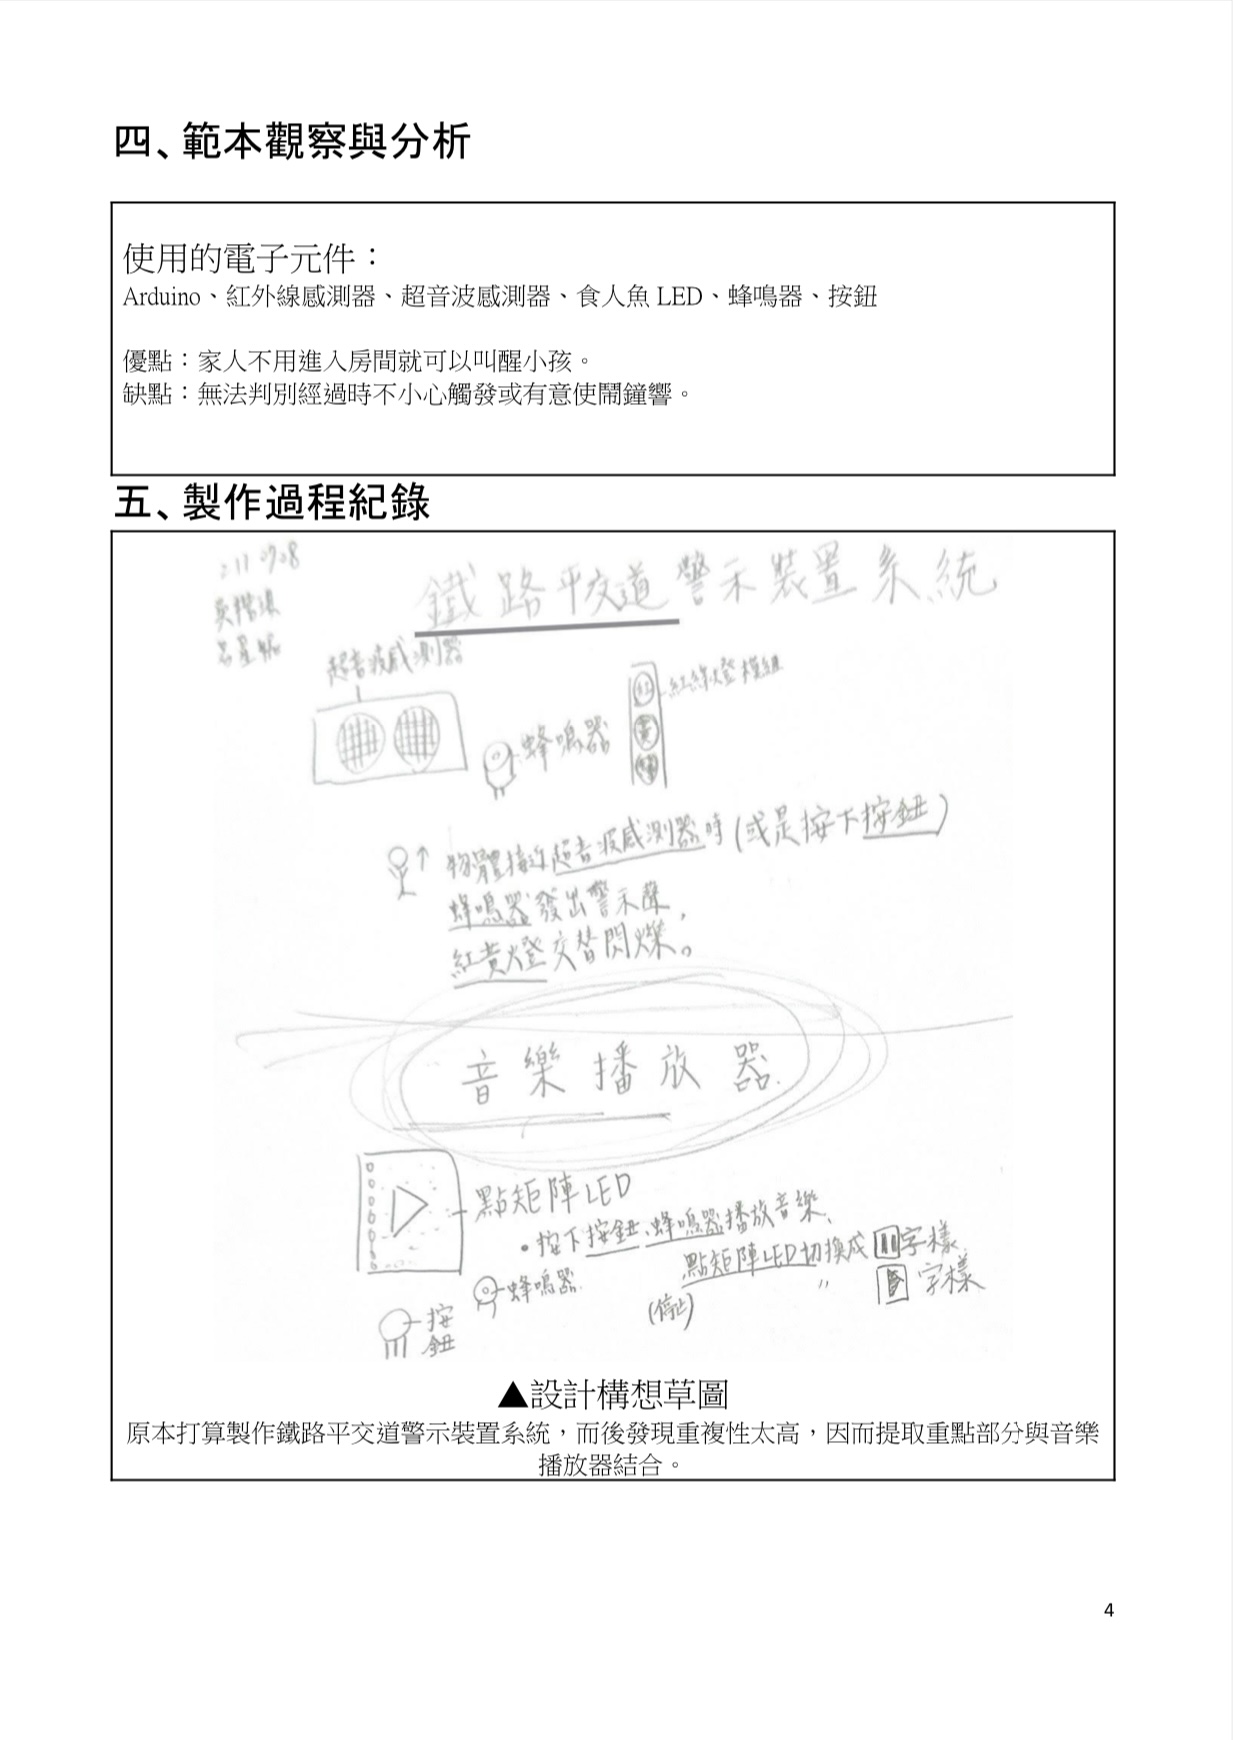 四、範本觀察與分析
使用的電子元件：
Arduino、紅外線感測器、超音波感測器、食人魚 LED、蜂鳴器、按鈕
優點：家人不用進入房間就可以叫醒小孩。
缺點：無法判別經過時不小心觸發或有意使鬧鐘響。
五、製作過程紀錄
鐵路平交道警示裝置系統
超音波感測器
紅綠燈模組
紅
黃
綠
蜂鳴器
物體接近超音波感測器時(或是按下按鈕)
蜂鳴器發出警示聲，
紅黃燈交替閃爍。
音樂播放器
點矩陣LED
•按下按鈕、蜂鳴器播放音樂、
點矩陣LED切換成 字樣
〃 字樣
(停止)
蜂鳴器
按
鈕
▲設計構想草圖
原本打算製作鐵路平交道警示裝置系統，而後發現重複性太高，因而提取重點部分與音樂
播放器結合。
4